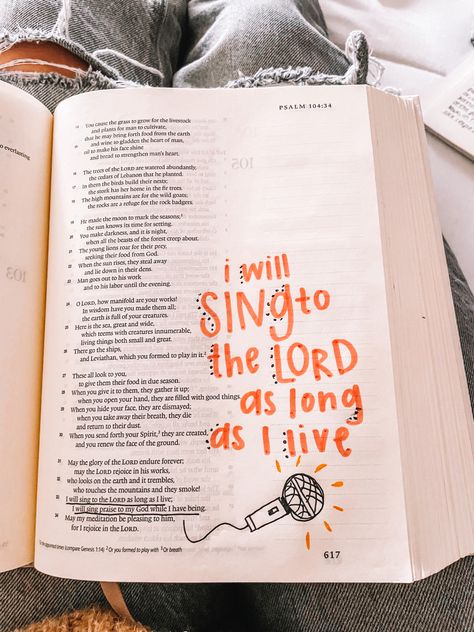 to everlasting
PSALM 104:34
14 You cause the grass to grow for the livestock
and plants for man to cultivate,
that he may bring forth food from the earth
15 and wine to gladden the heart of man,
oil to make his face shine
and bread to strengthen man's heart.
16 The trees of the LORD are watered abundantly,
the cedars of Lebanon that he planted.
17 In them the birds build their nests;
the stork has her home in the fir trees.
18 The high mountains are for the wild goats;
the rocks are a refuge for the rock badgers.
19 He made the moon to mark the seasons;
the sun knows its time for setting.
20 You make darkness, and it is night,
when all the beasts of the forest creep about.
21 The young lions roar for their prey,
seeking their food from God.
22 When the sun rises, they steal away
and lie down in their dens.
23 Man goes out to his work
and to his labor until the evening.
24 O LORD, how manifold are your works!
In wisdom have you made them all;
the earth is full of your creatures.
25 Here is the sea, great and wide,
which teems with creatures innumerable,
living things both small and great.
26 There go the ships,
and Leviathan, which you formed to play in it.²
27 These all look to you,
to give them their food in due season.
28 When you give it to them, they gather it up;
when you open your hand, they are filled with good things.
29 When you hide your face, they are dismayed;
when you take away their breath, they die
and return to their dust.
30 When you send forth your Spirit,³ they are created,
and you renew the face of the ground.
31 May the glory of the LORD endure forever;
may the LORD rejoice in his works,
32 who looks on the earth and it trembles,
who touches the mountains and they smoke!
33 I will sing to the LORD as long as I live;
I will sing praise to my God while I have being.
34 May my meditation be pleasing to him,
for I rejoice in the LORD.
appointed times (compare Genesis 1:14) ² Or you formed to play with ³ Or breath
i will
SING to
the LORD
as long
as I live
617